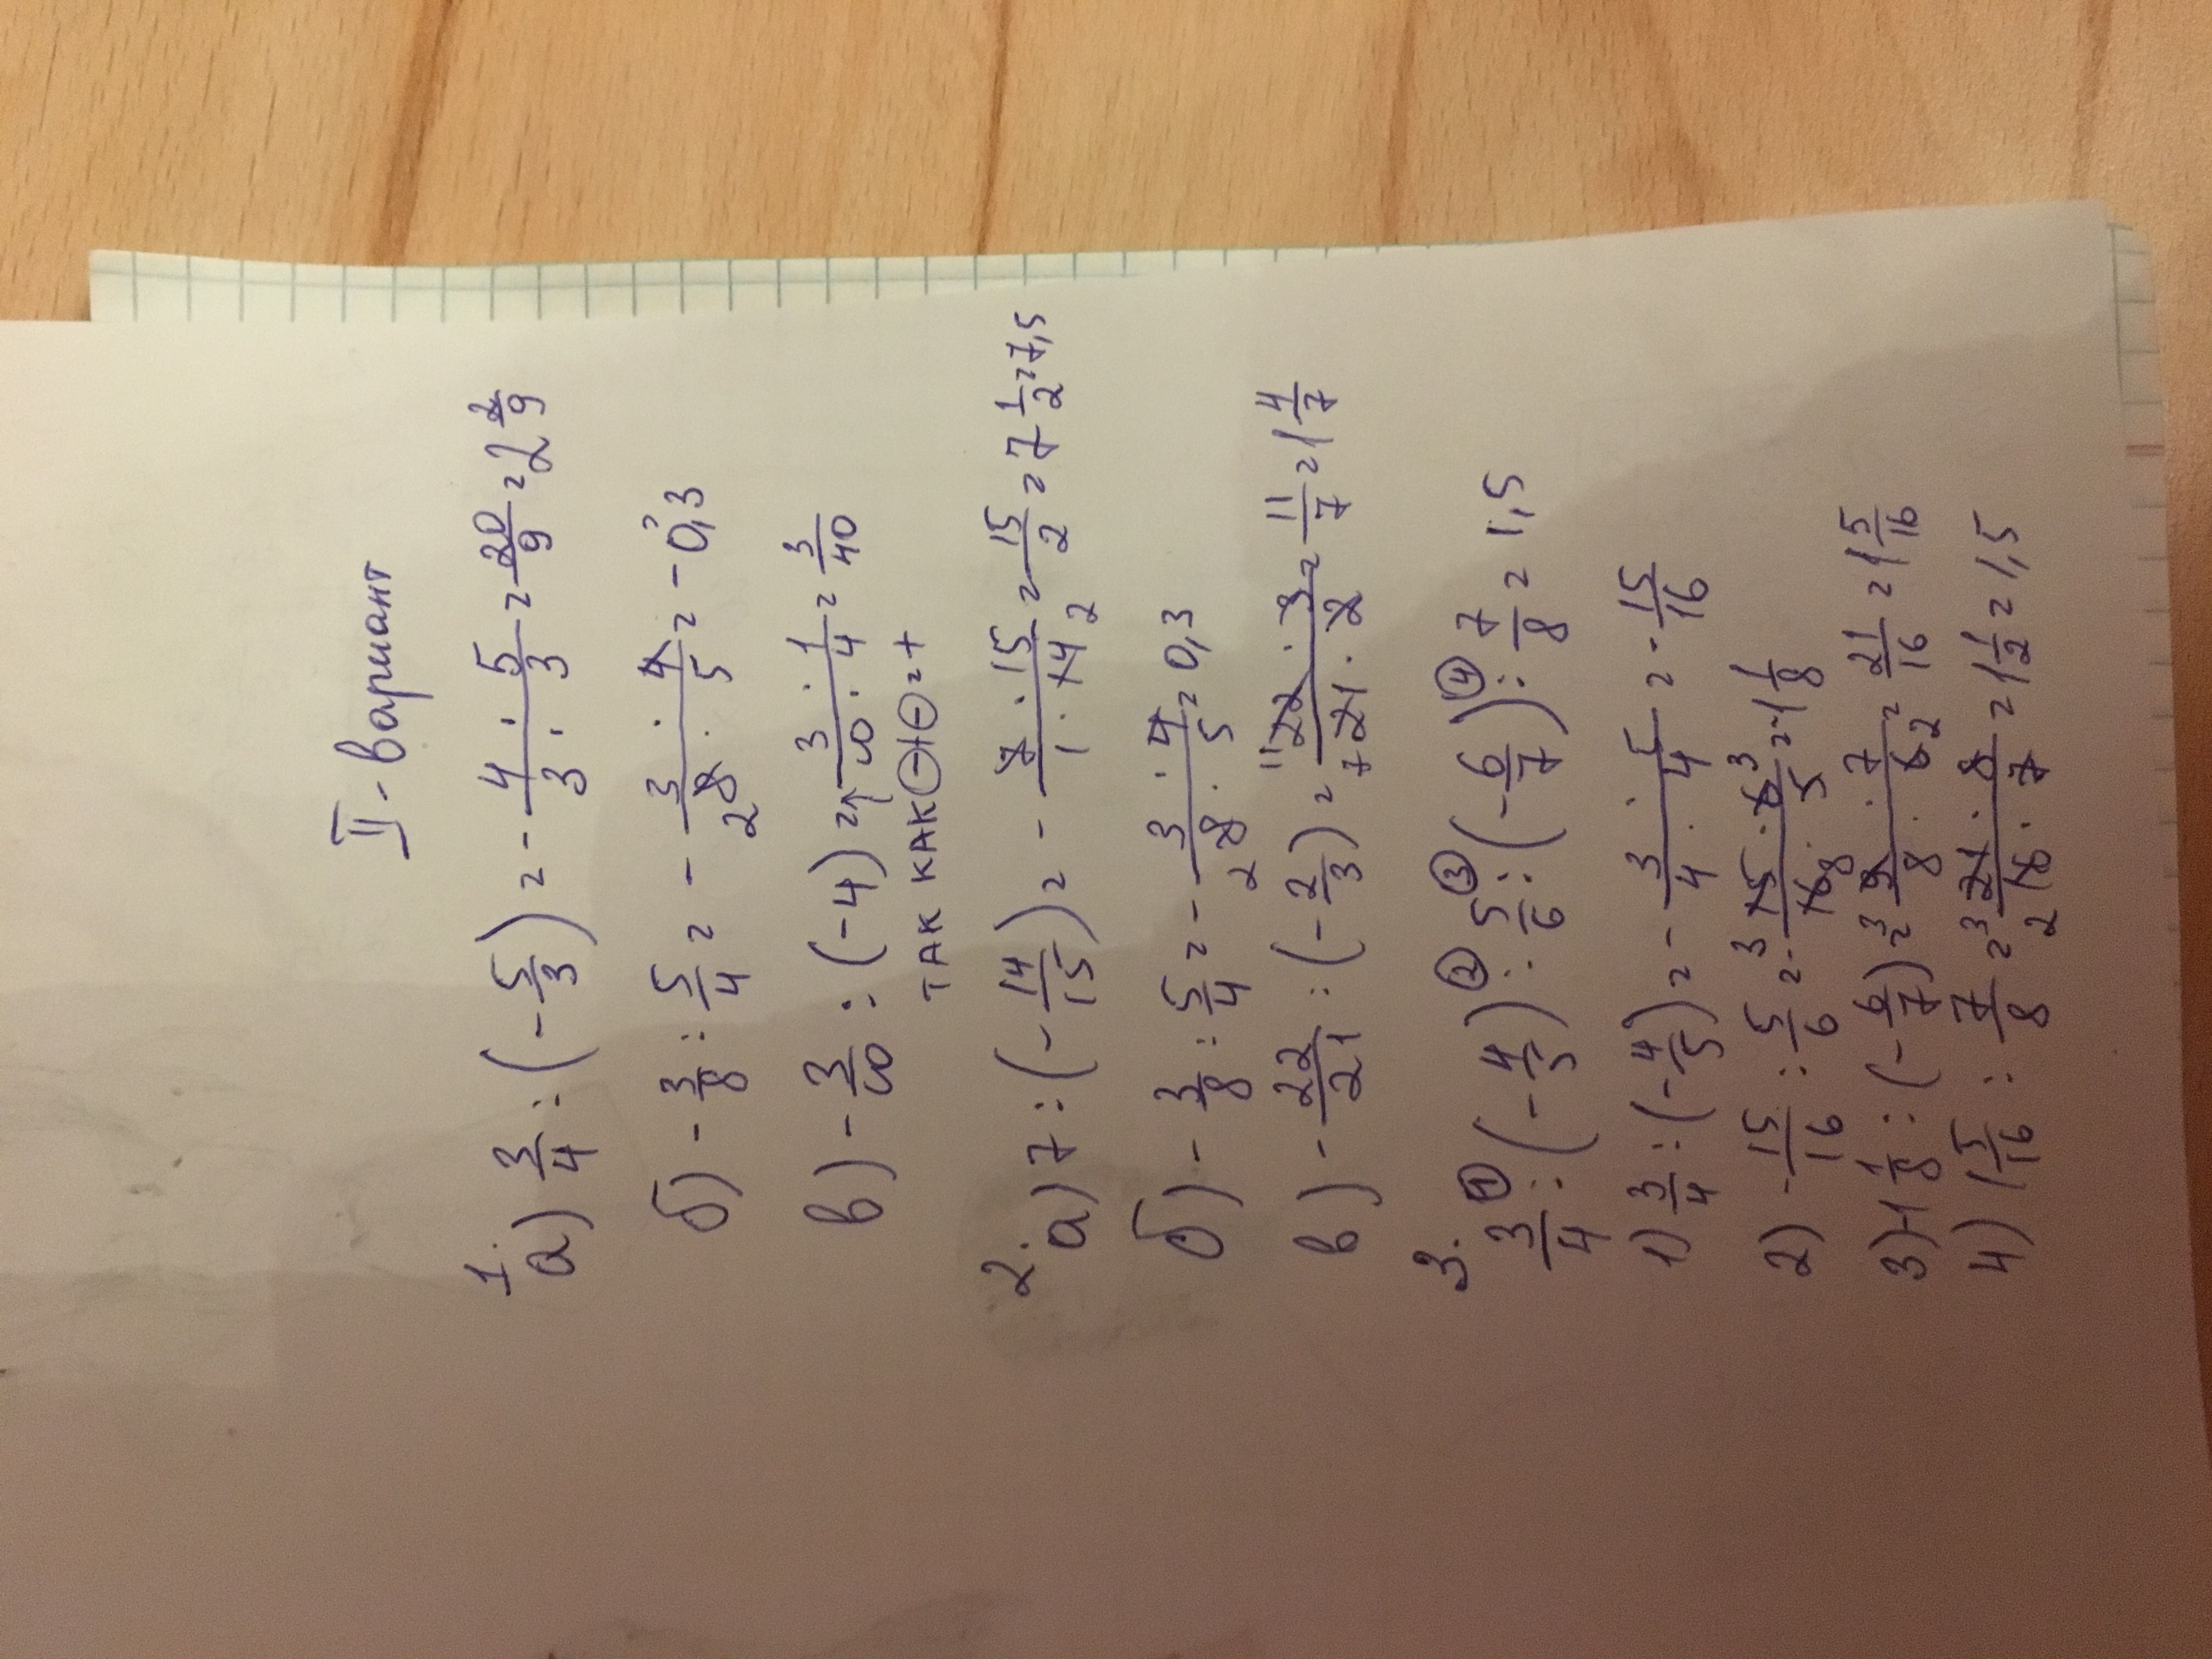 II - вариант
1.
а) 3/4 : (-5/3) = - 4/3 · 5/3 = 20/9 = 2 2/9
б) - 3/8 : 5/4 = - 3/8 · 4/5 2 = - 0,3
в) - 3/10 : (-4) = 3/10 · 1/4 = 3/40
ТАК КАК ⊖ и ⊖ = +
2.
а) 7 : (-14/15) = - 7/1 · 15/14 2 = 15/2 = 7 1/2 = 7,5
б) - 3/8 : 5/4 = - 3/8 · 4/5 2 = 0,3
в) - 22/21 : (-2/3) = 11 22/21 7 · 3/2 = 11/7 = 1 4/7
3.
3/4 ① : (-4/5) ② : 5/6 ③ : (-6/7) ④ : 7/8 = 1,5
1) 3/4 : (-4/5) = - 3/4 · 5/4 = - 15/16
2) - 15/16 : 5/6 = - 3 15/16 8 · 6 3/5 = - 1 1/8
3) - 1 1/8 : (-6/7) = 3 9/8 · 7/6 2 = 21/16 = 1 5/16
4) 1 5/16 : 7/8 = 3 21/16 2 · 8/7 = 1 1/2 = 1,5